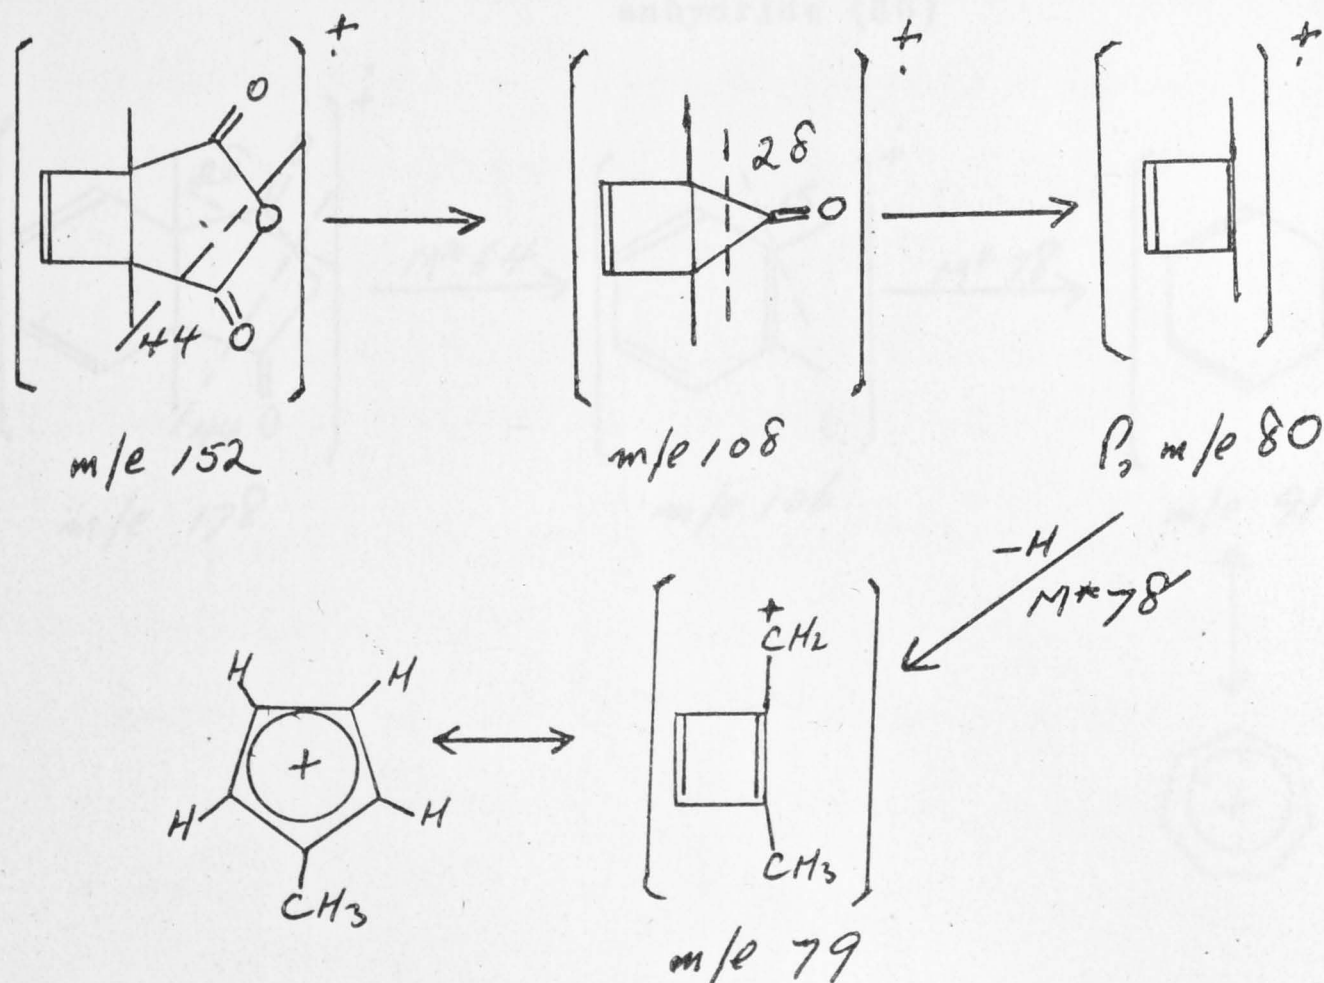 +.
+.
+.
O
O
O
44
28
O
m/e 152
m/e 108
P, m/e 80
-H
M* 78
+
CH2
CH3
m/e 79
H
H
H
H
+
CH3